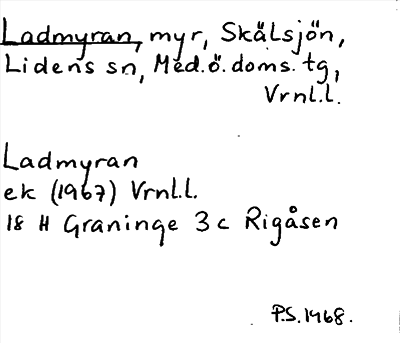 Ladmyran, myr, Skälsjön,
Lidens sn, Med.ö.doms.tg,
Vrnl.l.
Ladmyran
ek (1967) Vrnl.l.
18 H Graninge 3 c Rigåsen
P.S.1968.